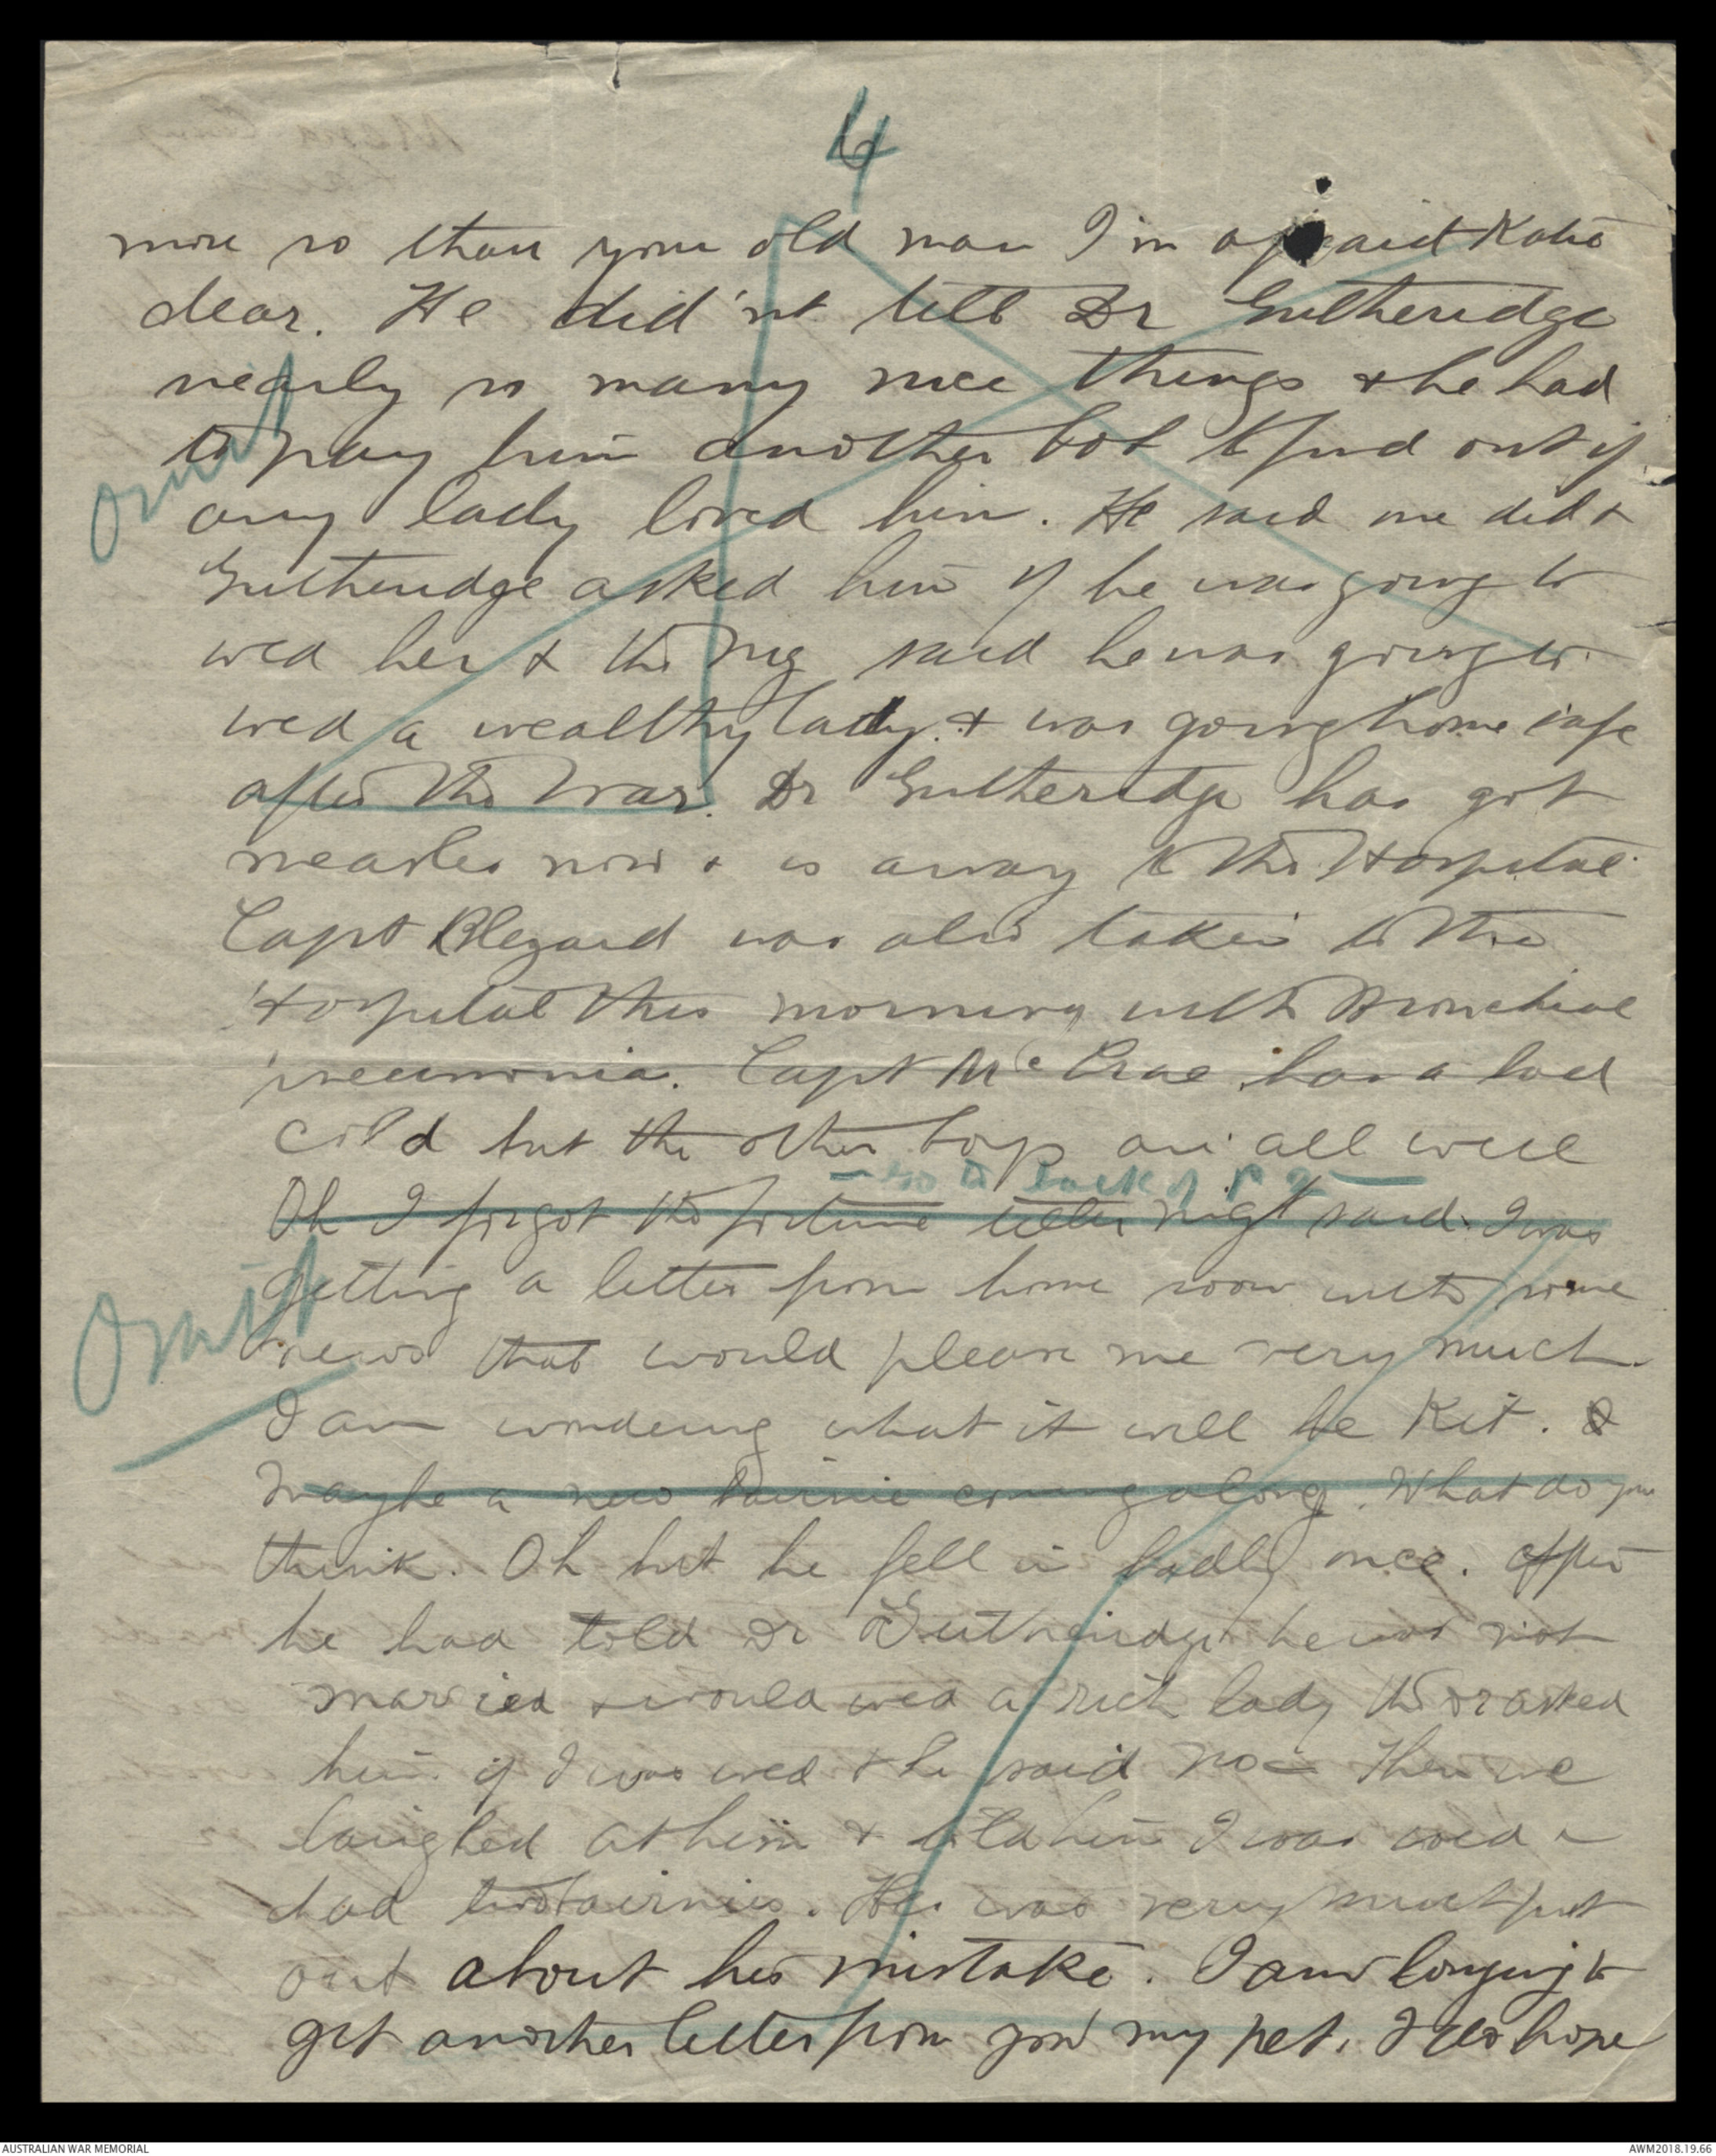 4
more so than your old man I'm afraid Katie
dear. He did'nt tell Dr Gutheridge
nearly so many nice things & he had
to pay him another bob to find out if
any lady loved him. He said one did &
Gutheridge asked him if he was going to
wed her & the nig said he was going to
wed a wealthy lady. & was going home safe
after the War. Dr Gutheridge has got
measles now & is away to the Hospital
Capt Blezard was also taken to the
Hospital this morning with Bronchial
pneumonia. Capt McCrae has a bad
cold but the other boys are all well
— Go to back of p 2 —
Oh I forgot the fortune teller nig said I was
getting a letter from home soon with some
news that would please me very much.
I am wondering what it will be Kit.
Maybe a new bairnie coming along. What do you
think. Oh but he fell in badly once. After
he had told Dr Gutheridge he was not
married & would wed a rich lady the Dr asked
him if I was wed & he said no Then we
laughed at him & told him I was wed &
had two bairnies. He was very much put
out about his mistake. I am longing to
get another letter from you my pet. I do hope
Omit
Omit
AUSTRALIAN WAR MEMORIAL
AWM2018.19.66